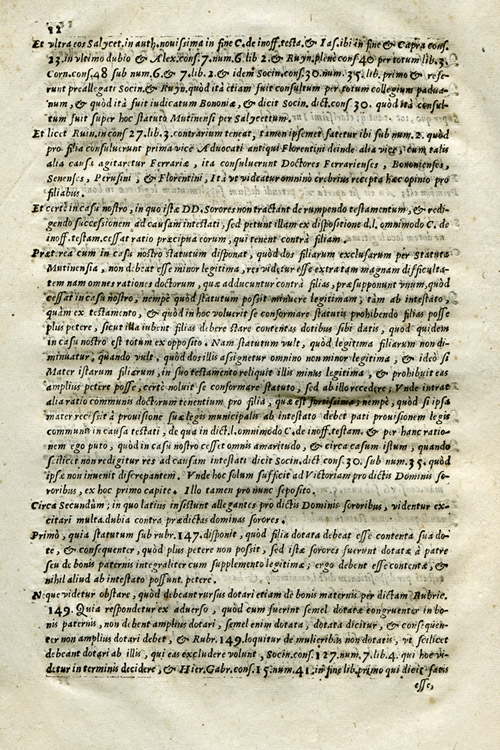 12
Et vltra eos Salycet.in auth.nouissima in fine C. de inoff.testa.& Ias.ibi in fine & Capra cons.
23.in vltimo dubio & Alex.cons.7.num.6.lib 2. & Ruyn.plenè cons.40 per totum lib.3.
Corn.cons.48 sub num.6.& 7.lib.2.& idem Socin.cons.30.num.35.lib.primo & refe-
runt preallegati Socin.& Ruyn.quòd ita etiam fuit consultum per totum collegium padua-
num, & quòd ita fuit iudicatum Bononiæ, & dicit Socin. dict.cons 30. quòd ita consul-
tum fuit super hoc statuto Mutinensi per Salycetum.
Et licet Ruin.in cons 27.lib.3.contrarium teneat, tamen ipsemet fatetur ibi sub num.2. quòd
pro filia consuluerunt prima vice Aduocati antiqui Florentini deinde alia vice, cum talis
alia causa agitaretur Ferrariæ, ita consuluerunt Doctores Ferrarienses, Bononienses,
Senenses, Perusini, & Florentini, Ita vt videatur omninò crebrius recepta hæc opinio pro
filiabus.
Et certè in casu nostro, in quo istæ DD.Sorores non tractant de rumpendo testamentum, & redi-
gendo successionem ad causam intestati, sed petunt illam ex dispositione d.l. omnimodo C. de
inoff.testam.cessat ratio præcipua eorum, qui tenent contrà filiam.
Præterea cum in casu nostro statutum disponat, quòd dos filiarum exclusarum per Statuta
Mutinensia, non dibeat esse minor legitima, res videtur esse extra tam magnam difficulta-
tem nam omnes rationes doctorum, quæ adducuntur contrà filias, præsupponunt vnum,quòd
cessat in casu nostro, nempè quòd statutum possit minuere legitimam, tàm ab intestato,
quàm ex testamento, & quòd in hoc voluerit se conformare statutis prohibendo filias posse
plus petere, sicut illa iubent filias debere stare contentas dotibus sibi datis, quod quidem
in casu nostro est totum ex opposito. Nam statutum vult, quòd legitima filiarum non di-
minuatur, quando vult, quòd dos illis assignetur omninò non minor legitima, & ideò si
Mater istarum filiarum, in suo testamento reliquit illis minus legitima, & prohibuit eas
amplius petere posse, certè noluit se conformare statuto, sed ab illo recedere; Vnde intrat
alia ratio communis doctorum tenentium pro filia, quæ est fortissima; nempè, quòd si ipsa
mater recessit à prouisione suæ legis municipalis ab intestato debet pati prouisionem legis
communis in causa testati, de qua in dict.l.omnimodo C. de inoff.testam. & per hanc ratio-
nem ego puto, quòd in casu nostro cesset omnis amaritudo, & circa casum istum, quando
scilicet non redigitur res ad causam intestati dicit Socin.dict cons.30. sub num.35. quòd
ipse non inuenit discrepantem. Vnde hoc solum sufficit ad Victoriam pro dictis Dominis so-
roribus, ex hoc primo capite. Illo tamen pro nunc seposito.
Circa Secundum; in quo latius insistunt allegantes pro dictis Dominis sororibus, videntur ex-
citari multa dubia contra prædictas dominas sorores.
Primò, quia statutum sub rubr.147.disponit, quòd filia dotata debeat esse contenta sua do-
te, & consequenter, quòd plus petere non possit, sed istæ sorores fuerunt dotatæ à patre
seu de bonis paternis integraliter cum supplemento legitimæ; ergo debent esse contentæ, &
nihil aliud ab intestato possunt petere.
Neque videtur obstare, quòd debeant rursus dotari etiam de bonis maternis per dictam Rubric.
149. Quia respondetur ex aduerso, quòd cum fuerint semel dotatæ congruenter in bo-
nis paternis, non debent amplius dotari, semel enim dotata, dotata dicitur, & consequen-
ter non amplius dotari debet, & Rubr.149.loquitur de mulieribus non dotatis, vt scilicet
debeant dotari ab illis, qui eas excludere volunt, Socin.cons.127.num.7.lib.4. qui hoc vi-
detur in terminis decidere, & Hier.Gabr.cons.15.num.41.in fine lib.primo qui dicit satis
esse,